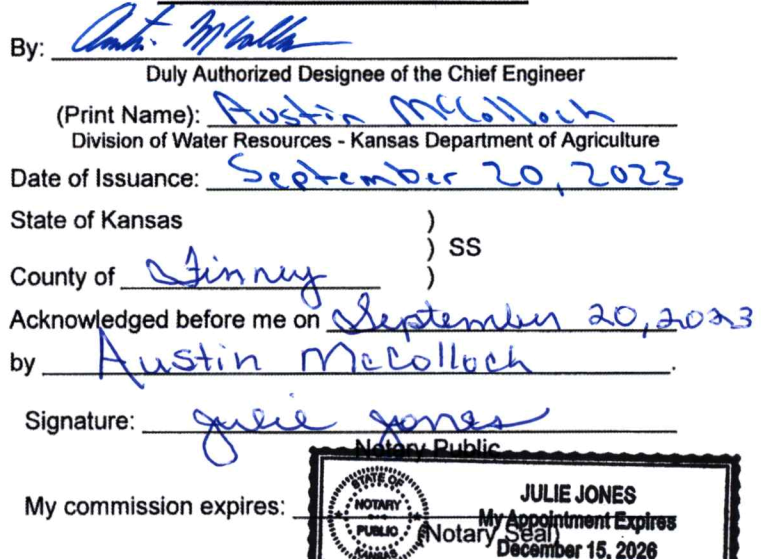 By: Austin McColloch
Duly Authorized Designee of the Chief Engineer
(Print Name): Austin McColloch
Division of Water Resources - Kansas Department of Agriculture
Date of Issuance: September 20, 2023
State of Kansas )
) SS
County of Finney )
Acknowledged before me on September 20, 2023
by Austin McColloch.
Signature: Julie Jones
Notary Public
My commission expires:
(Notary Seal)
STATE OF
NOTARY
PUBLIC
KANSAS
JULIE JONES
My Appointment Expires
December 15, 2026